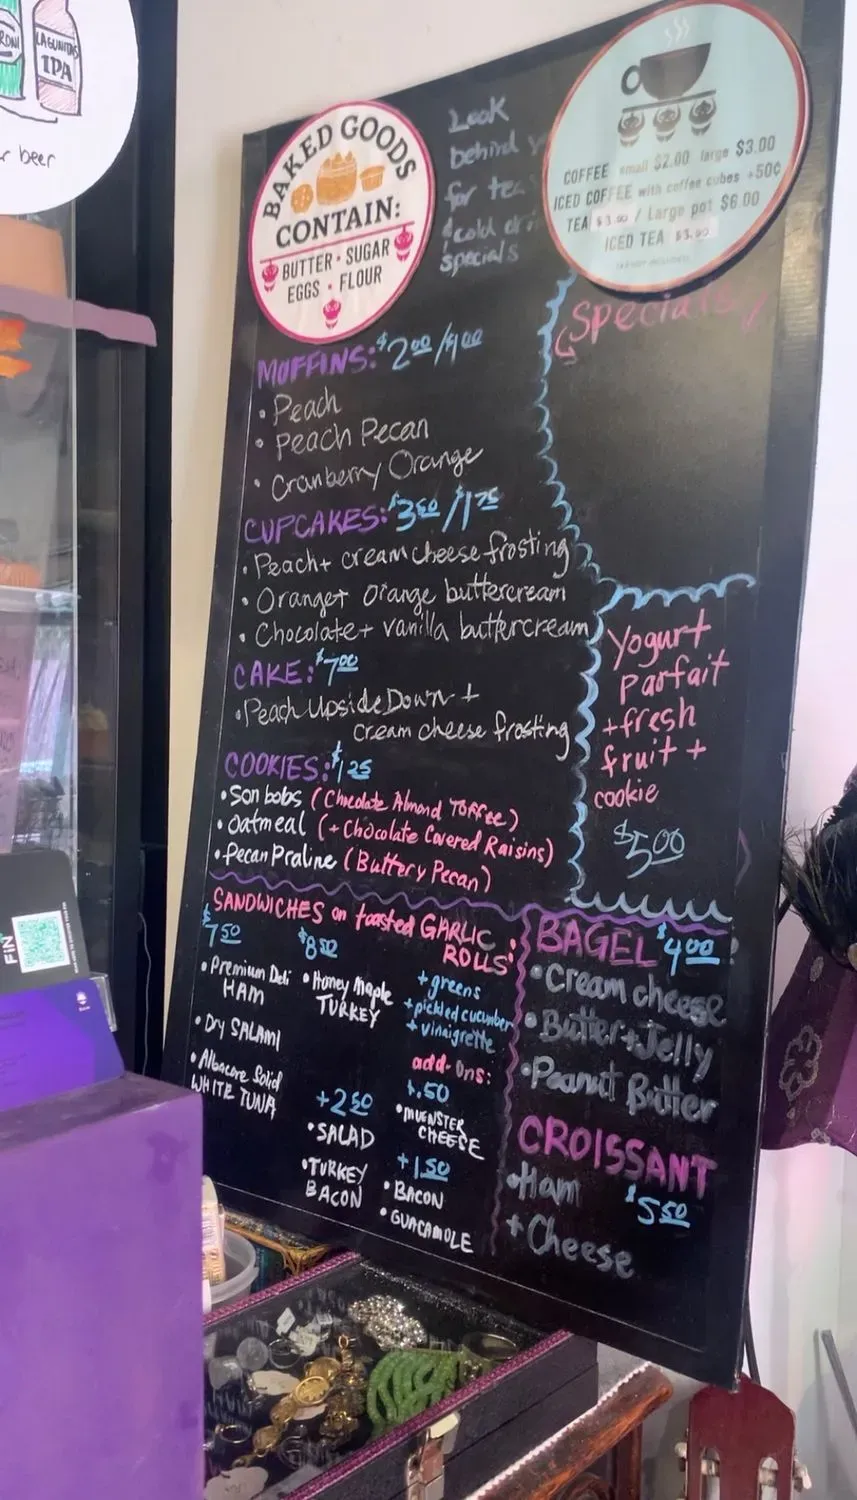 LAGUNITAS
IPA
beer
BAKED GOODS
CONTAIN:
BUTTER • SUGAR
EGGS • FLOUR
Look
behind
for tea
& cold
specials
COFFEE small $2.00 large $3.00
ICED COFFEE with coffee cubes +50¢
TEA $3.00 / Large pot $6.00
ICED TEA $3.00
Specials
MUFFINS: $2.00/
• Peach
• Peach Pecan
• Cranberry Orange
CUPCAKES: $3.50/$1.75
• Peach + cream cheese frosting
• Orange + Orange buttercream
• Chocolate + vanilla buttercream
CAKE: $7.00
• Peach Upside Down +
cream cheese frosting
COOKIES: $1.25
• Son bobs (Chocolate Almond Toffee)
• Oatmeal (+ Chocolate Covered Raisins)
• Pecan Praline (Buttery Pecan)
Yogurt
Parfait
+ fresh
fruit +
cookie
$5.00
SANDWICHES on toasted GARLIC
ROLLS:
$7.50
• Premium Deli
HAM
• Dry SALAMI
• Albacore Solid
WHITE TUNA
$8.50
• Honey Maple
TURKEY
+2.50
• SALAD
• TURKEY
BACON
+ greens
+ pickled cucumber
+ vinaigrette
add-ons:
+.50
• MUENSTER
CHEESE
+1.50
• BACON
• GUACAMOLE
BAGEL $4.00
• Cream cheese
• Butter + Jelly
• Peanut Butter
CROISSANT
• Ham $5.50
+ Cheese